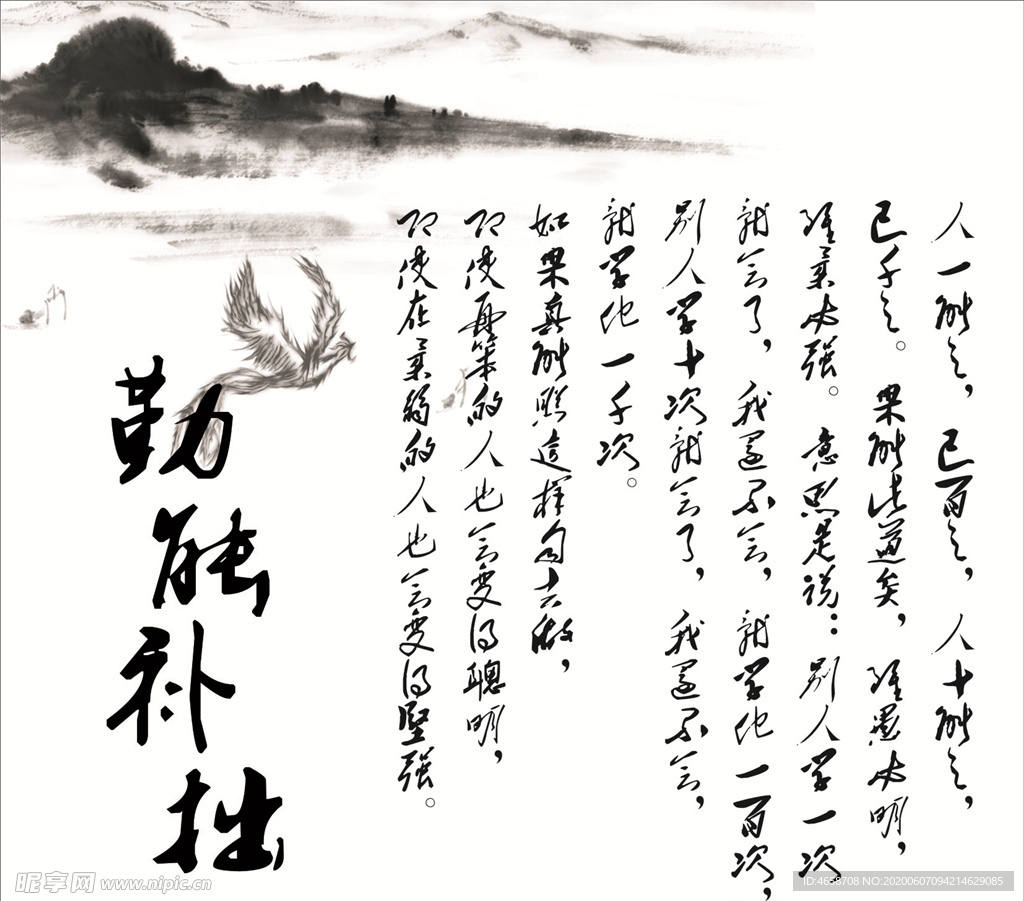 人一能之，己百之，人十能之，
己千之。果能此道矣，虽愚必明，
虽柔必强。意思是说：别人学一次
就会了，我还不会，就学他一百次，
别人学十次就会了，我还不会，
就学他一千次。
如果真能照这样自去做，
即使再笨的人也会变得聪明，
即使在柔弱的人也会变得坚强。
勤能补拙
昵享网 www.nipic.cn
ID:4658708 NO:20200607094214629085